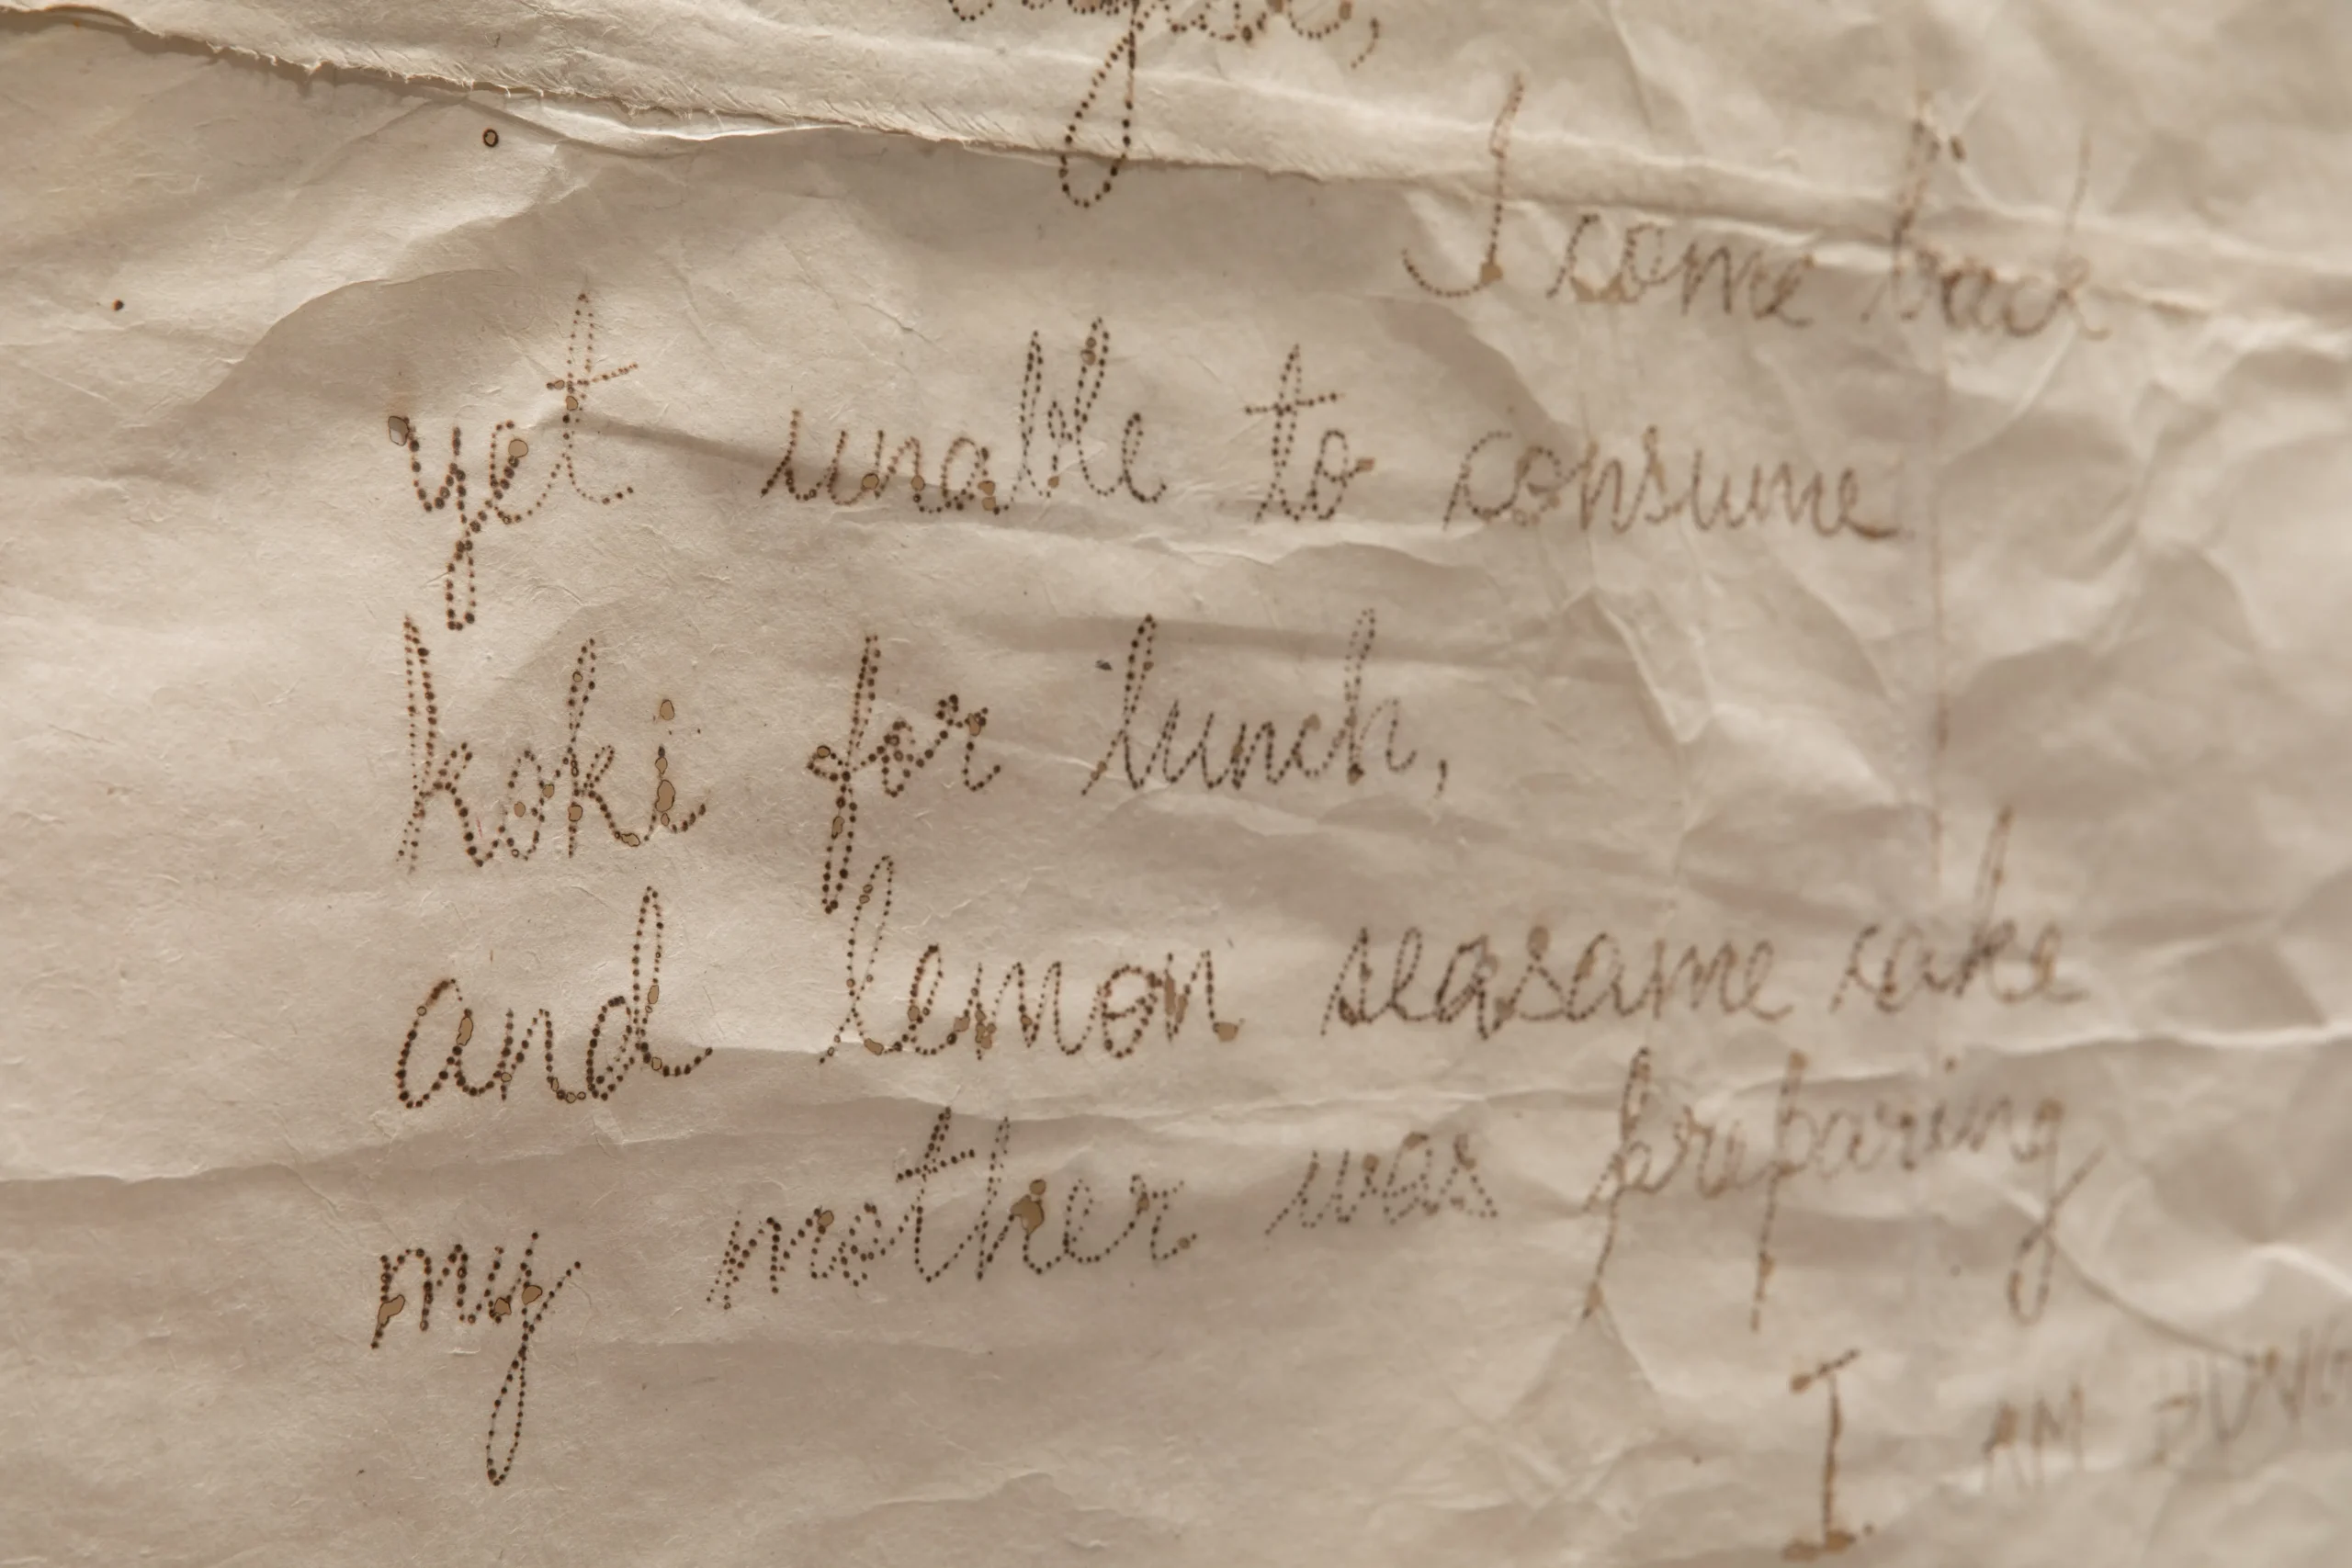 I come back
yet unable to consume
koki for lunch,
and lemon seasame cake
my mother was preparing
I AM